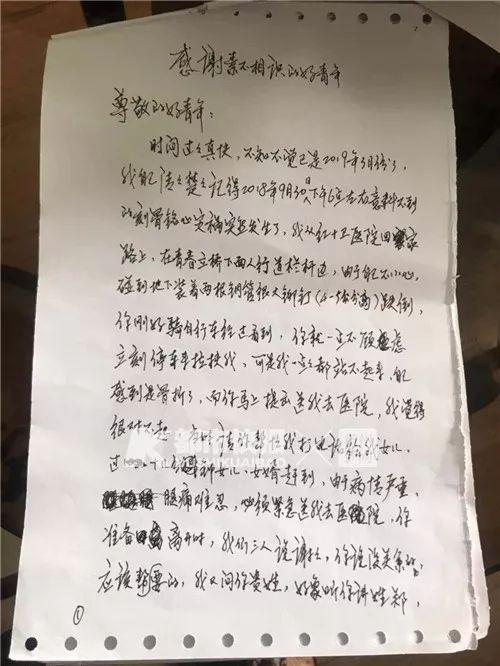 感谢素不相识的好青年
尊敬的好青年：
时间过之真快，不知不觉已是2019年3月份了，
我自己清之楚之记得2018年9月30日下午6点左右意料不到
的刻骨铭心灾祸突然发生了，我从红十卫医院回家
路上，在青春立桥下面人行道栏杆边，由于自己不小心，
碰到地下装着两根钢管很大铆钉 跌倒，
你刚好骑自行车经过看到，你就一点不顾虑
立刻停车来拉扶我，可是我一点都站不起来，自己
感到是骨折了，而你马上提出送我去医院，我觉得
很对不起，请你帮我打电话给我女儿，
过 十 分钟女儿、女婿赶到，由于病情严重，
腿痛难忍，必须紧急送我去医院，你
准备离开时，我们三人说谢谢，你说没关系的，
应该帮 的，我又问你贵姓，好像听你讲姓郑，
①